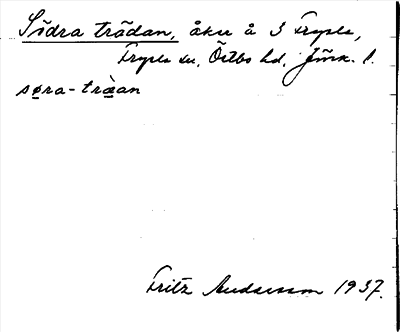 Södra trädan, åker å 3 Fryele,
Fryele sn. Östbo hd. Jönk. l.
søra-træ̀an
Fritz Andersson 1937.